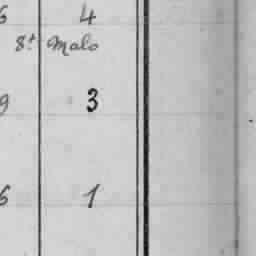 6 4
St Malo
9 3
6 1